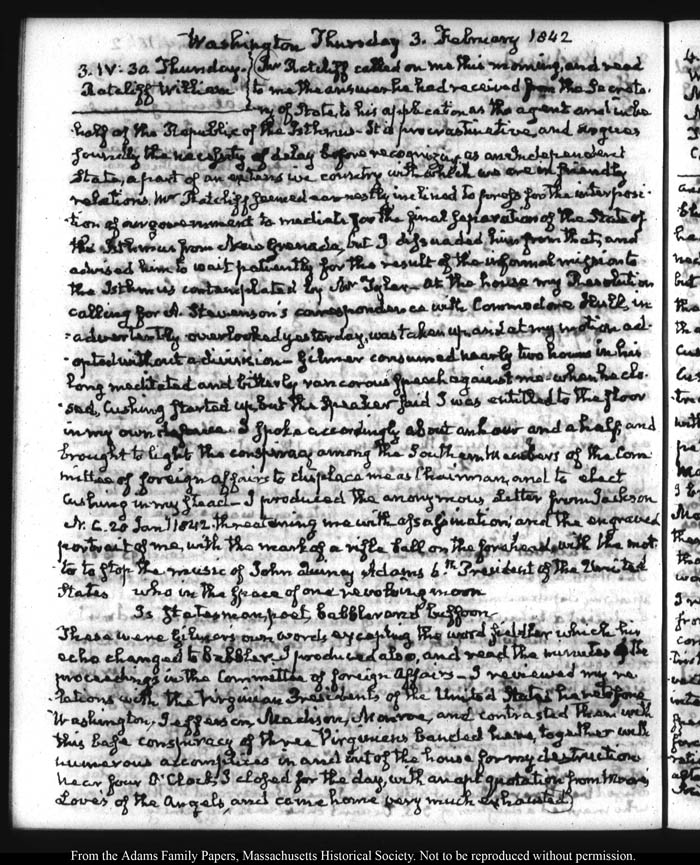 Washington Thursday 3. February 1842
3. IV: 30 Thursday. Mr Ratcliff called on me this morning, and read
Ratcliff William to me the answer he had received from the Secreta-
ry of State, to his application as the agent and in be-
half of the Republic of the Isthmus. It is procrastinative, and argues
the necessity of delay before recognizing as an Independent
State, a part of an extensive country with which we are in friendly
relations. Mr Ratcliff seemed earnestly inclined to press for the interposi-
tion of our government to mediate for the final separation of the State of
the Isthmus from New Grenada, but I dissuaded him from that, and
advised him to wait patiently for the result of the informal mission to
the Isthmus contemplated by Mr Tyler— At the house my Resolution
calling for A. Stevenson's correspondence with Commodore Hull, in-
advertently overlooked yesterday, was taken up and at my motion ad-
opted without a division— Gilmer consumed nearly two hours in his
long meditated and bitterly rancorous speech against me— when he clo-
sed, Cushing started up but the Speaker said I was entitled to the floor
in my own defence. I spoke accordingly about an hour and a half, and
brought to light the conspiracy among the Southern members of the Com-
mittee of foreign affairs to displace me as Chairman, and to elect
Cushing in my stead— I produced the anonymous Letter from Jackson
N. C. 20 Jany 1842 threatening me with assassination, and the engraved
portrait of me, with the mark of a rifle ball on the forehead, with the mot-
to to stop the music of John Quincy Adams 6th President of the United
States who in the space of one revolving moon
Is Statesman, poet, babbler and buffoon
These were Gilmer's own words excepting the word fiddler which his
echo changed to Babbler. I produced also, and read the minutes of the
proceedings in the Committee of foreign Affairs— I reviewed my re-
lations with the Virginian Presidents of the United States heretofore
Washington, Jefferson, Madison, Monroe, and contrasted them with
this base conspiracy of three Virginians banded here, together with
numerous accomplices in and out of the house for my destruction
Near four O'Clock, I closed for the day, with an apt quotation from Moore's
Loves of the Angels, and came home very much exhausted
From the Adams Family Papers, Massachusetts Historical Society. Not to be reproduced without permission.